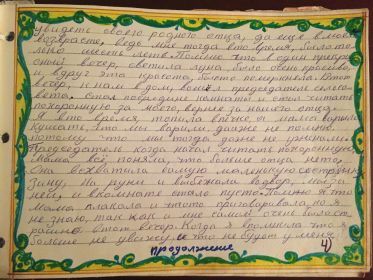 увидеть своего родного отца, да ещё в моём
возрасте, ведь мне тогда в то время, было то-
лько шесть лет. Помню что в один прекра-
сный вечер, светила луна, было очень красиво,
и вдруг эта красота, быстро померкнула. В этот
вечер, к нам в дом, вошёл председатель сельсо-
вета, стал посредине комнаты и стал читать
похоронную на моего, вернее на нашего отца.
Я в это время, топила печку, а мама варила
кушать, что мы варили, даже не помню,
потому что мы тогда даже не ужинали.
Председатель когда начал читать похоронную,
Мама всё поняла, что больше отца нет,
Она схватила самую маленькую сестрёнку
Зину, на руки и выбежала во двор, мы за
ней, и в комнате стало пусто. Помню я что
мама плакала и что-то приговаривала, но я
не знаю, так как и мне самой очень было ст-
рашно в тот вечер. Когда я вспомнила что я
больше не увижу, и что не будет у меня
продолжение 4)